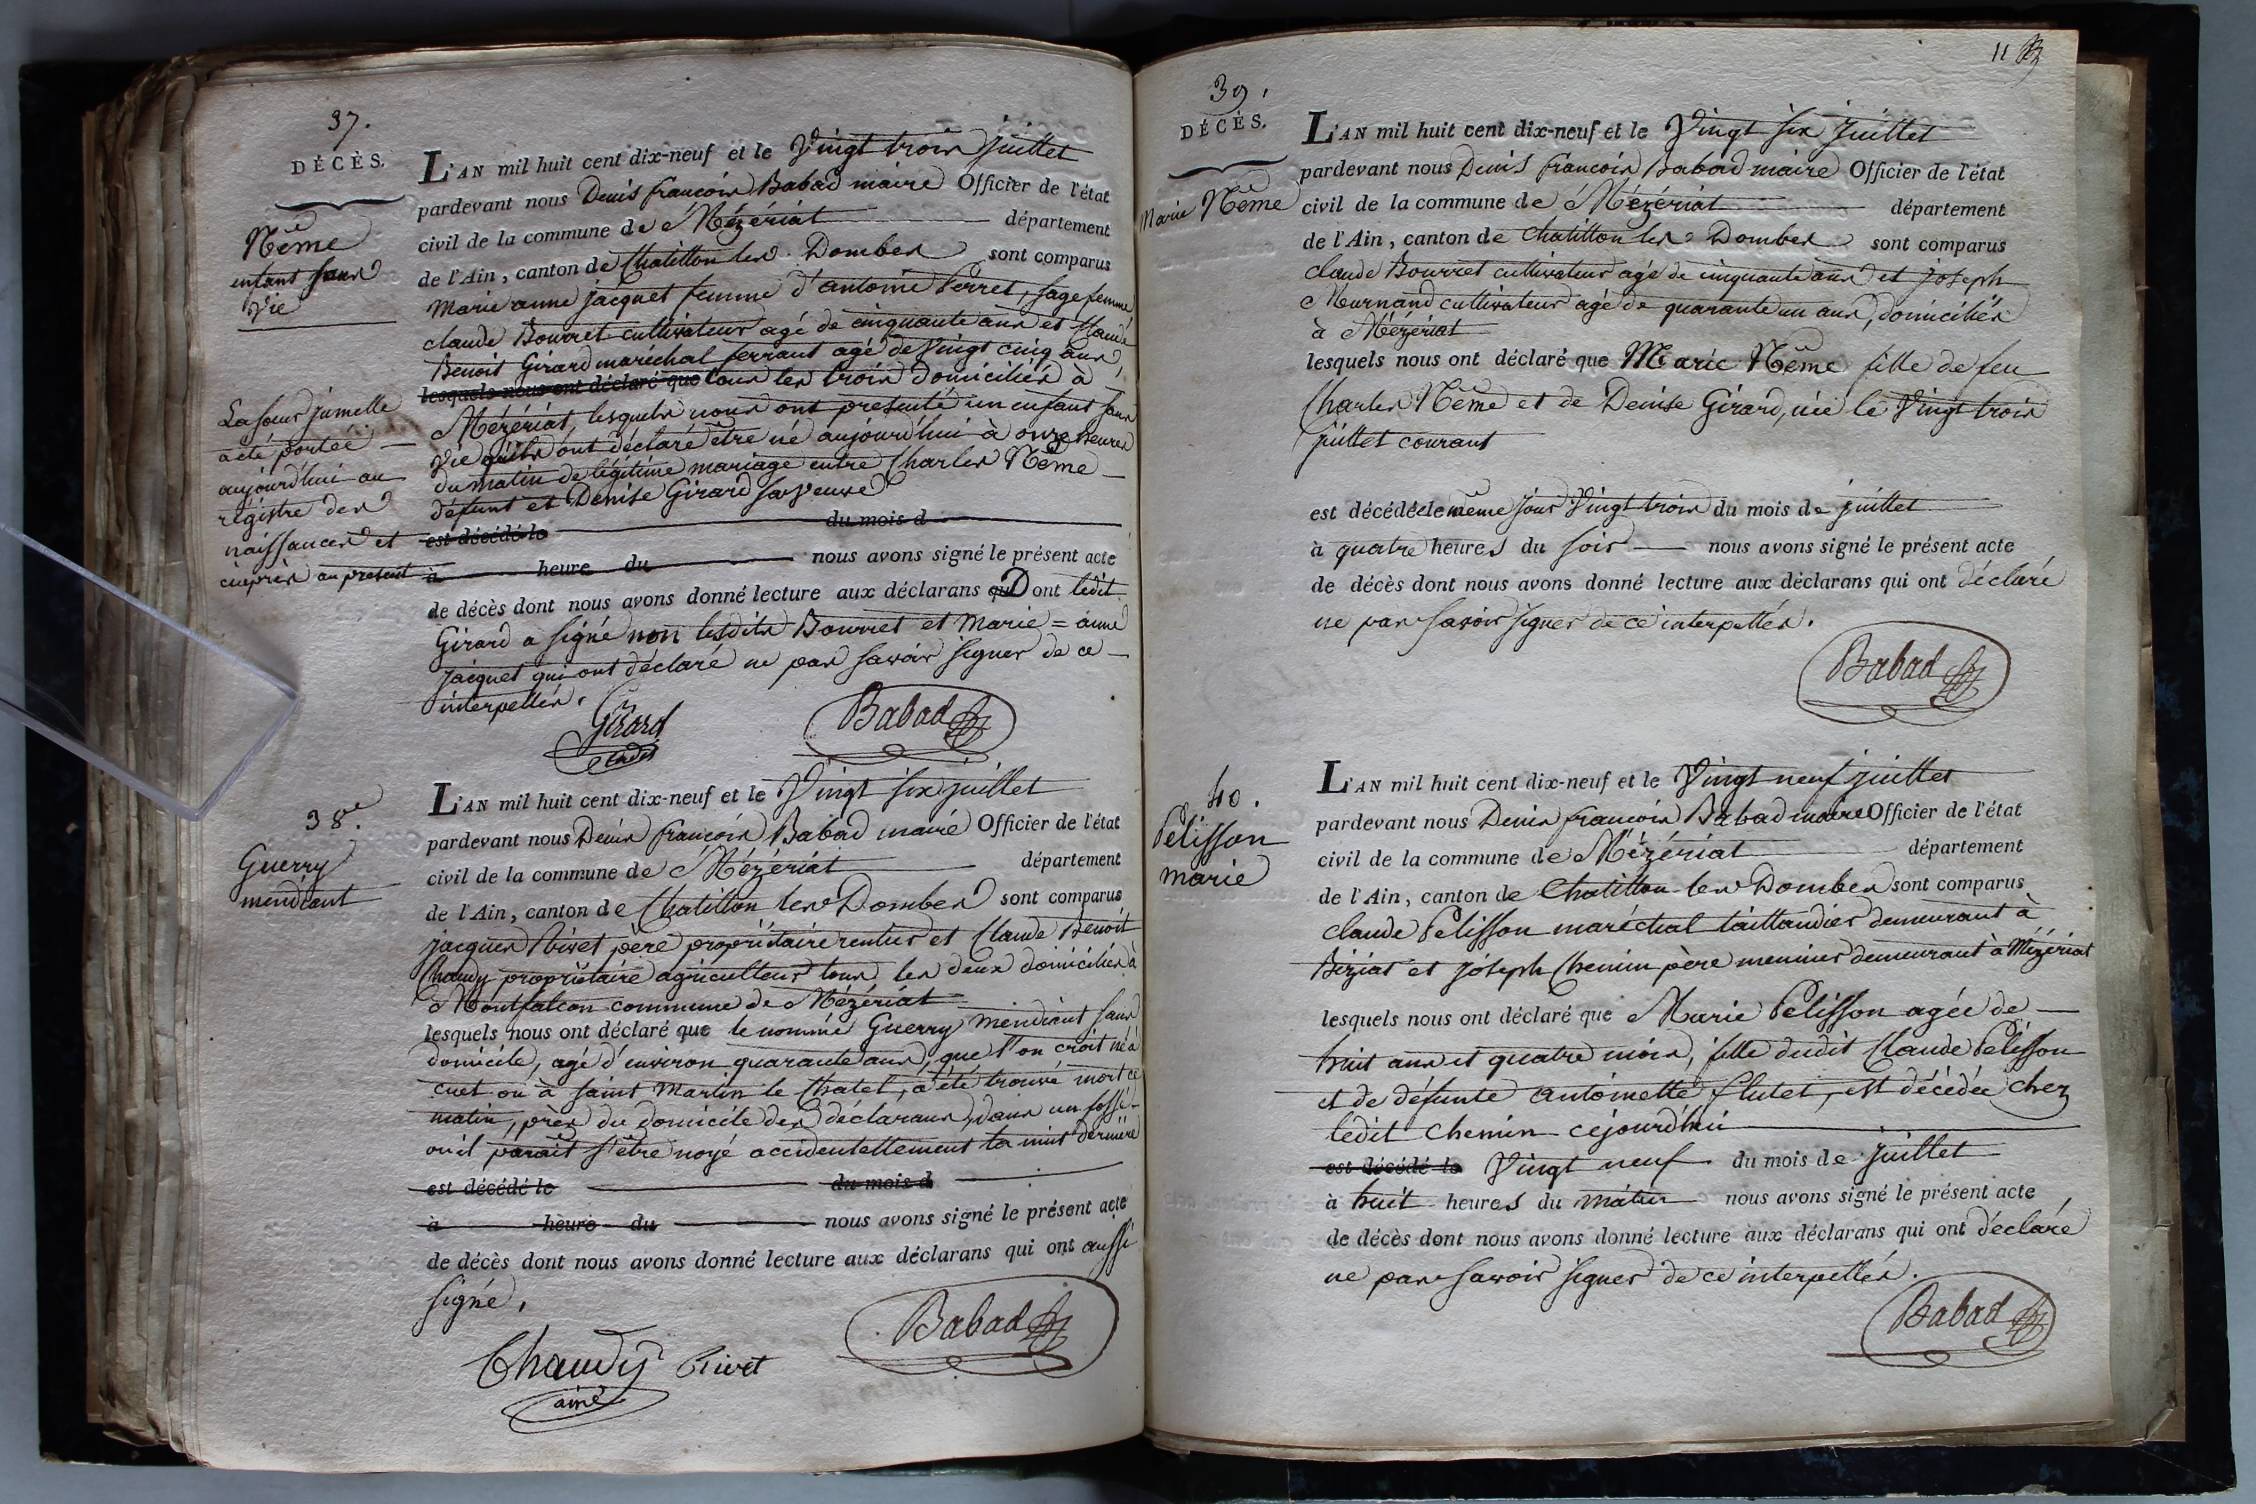 37.
DÉCÈS.
Nême
enfant sans
vie
La sœur jumelle
a été portée
aujourd'hui au
registre des
naissances et
ci après au present
L'AN mil huit cent dix-neuf et le Vingt trois juillet
pardevant nous Denis françois Babad maire Officier de l'état
civil de la commune de Mézériat département
de l'Ain, canton de Chatillon les Dombes sont comparus
Marie anne jacquet femme d'antoine Perret, sage femme
claude Bourret cultivateur agé de cinquante ans et Claude
Benoit Girard maréchal ferrant agé de Vingt cinq ans,
lesquels nous ont déclaré que tous les trois domiciliés à
Mézériat, lesquels nous ont presenté un enfant sans
vie qu'ils ont déclaré être né aujourd'hui à onze heures
du matin de légitime mariage entre Charles Nême
défunt et Denise Girard sa veuve
est décédé le du mois d
à heure du nous avons signé le présent acte
de décès dont nous avons donné lecture aux déclarans qui Dont ledit
Girard a signé non lesdits Bourret et Marie = anne
jacquet qui ont déclaré ne pas savoir signer de ce
interpellés.
Girard
Babad
38e.
Guerry
mendiant
L'AN mil huit cent dix-neuf et le Vingt six juillet
pardevant nous Denis françois Babad maire Officier de l'état
civil de la commune de Mézériat département
de l'Ain, canton de Chatillon les Dombes sont comparus
jacques Rivet père propriétaire rentier et Claude Benoit
Chaudy propriétaire agriculteur tous les deux domiciliés à
Montfalcon commune de Mézériat
lesquels nous ont déclaré que le nommé Guerry mendiant sans
domicile, agé d'environ quarante ans, que l'on croit né à
cuet ou à saint Martin le Chatel, a été trouvé mort ce
matin, près du domicile des déclarans, dans un fossé
où il parait s'être noyé accidentellement la nuit dernière
est décédé le du mois d
à heure du nous avons signé le présent acte
de décès dont nous avons donné lecture aux déclarans qui ont aussi
signé.
Babad
Chaudy Rivet
ainé
11
39.
DÉCÈS.
Marie Nême
L'AN mil huit cent dix-neuf et le Vingt six juillet
pardevant nous Denis françois Babad maire Officier de l'état
civil de la commune de Mézériat département
de l'Ain, canton de Chatillon les Dombes sont comparus
claude Bourret cultivateur agé de cinquante ans et joseph
Mournand cultivateur agé de quarante un ans, domiciliés
à Mézériat
lesquels nous ont déclaré que Marie Nême fille de feu
Charles Nême et de Denise Girard, née le Vingt trois
juillet courant
est décédée le même jour Vingt trois du mois de juillet
à quatre heures du soir nous avons signé le présent acte
de décès dont nous avons donné lecture aux déclarans qui ont déclaré
ne pas savoir signer de ce interpellés.
Babad
40.
Pelisson
marie
L'AN mil huit cent dix-neuf et le Vingt neuf juillet
pardevant nous Denis françois Babad maire Officier de l'état
civil de la commune de Mézériat département
de l'Ain, canton de Chatillon les Dombes sont comparus
claude Pelisson maréchal taillandier demeurant à
Biziat et joseph Chemin père meunier demeurant à Mézériat
lesquels nous ont déclaré que Marie Pelisson agée de
huit ans et quatre mois, fille dudit Claude Pélisson
et de défunte antoinette flutet, est décédée chez
ledit chemin cejourd'hui
est décédé le Vingt neuf du mois de juillet
à huit heures du matin nous avons signé le présent acte
de décès dont nous avons donné lecture aux déclarans qui ont déclaré
ne pas savoir signer de ce interpellés.
Babad